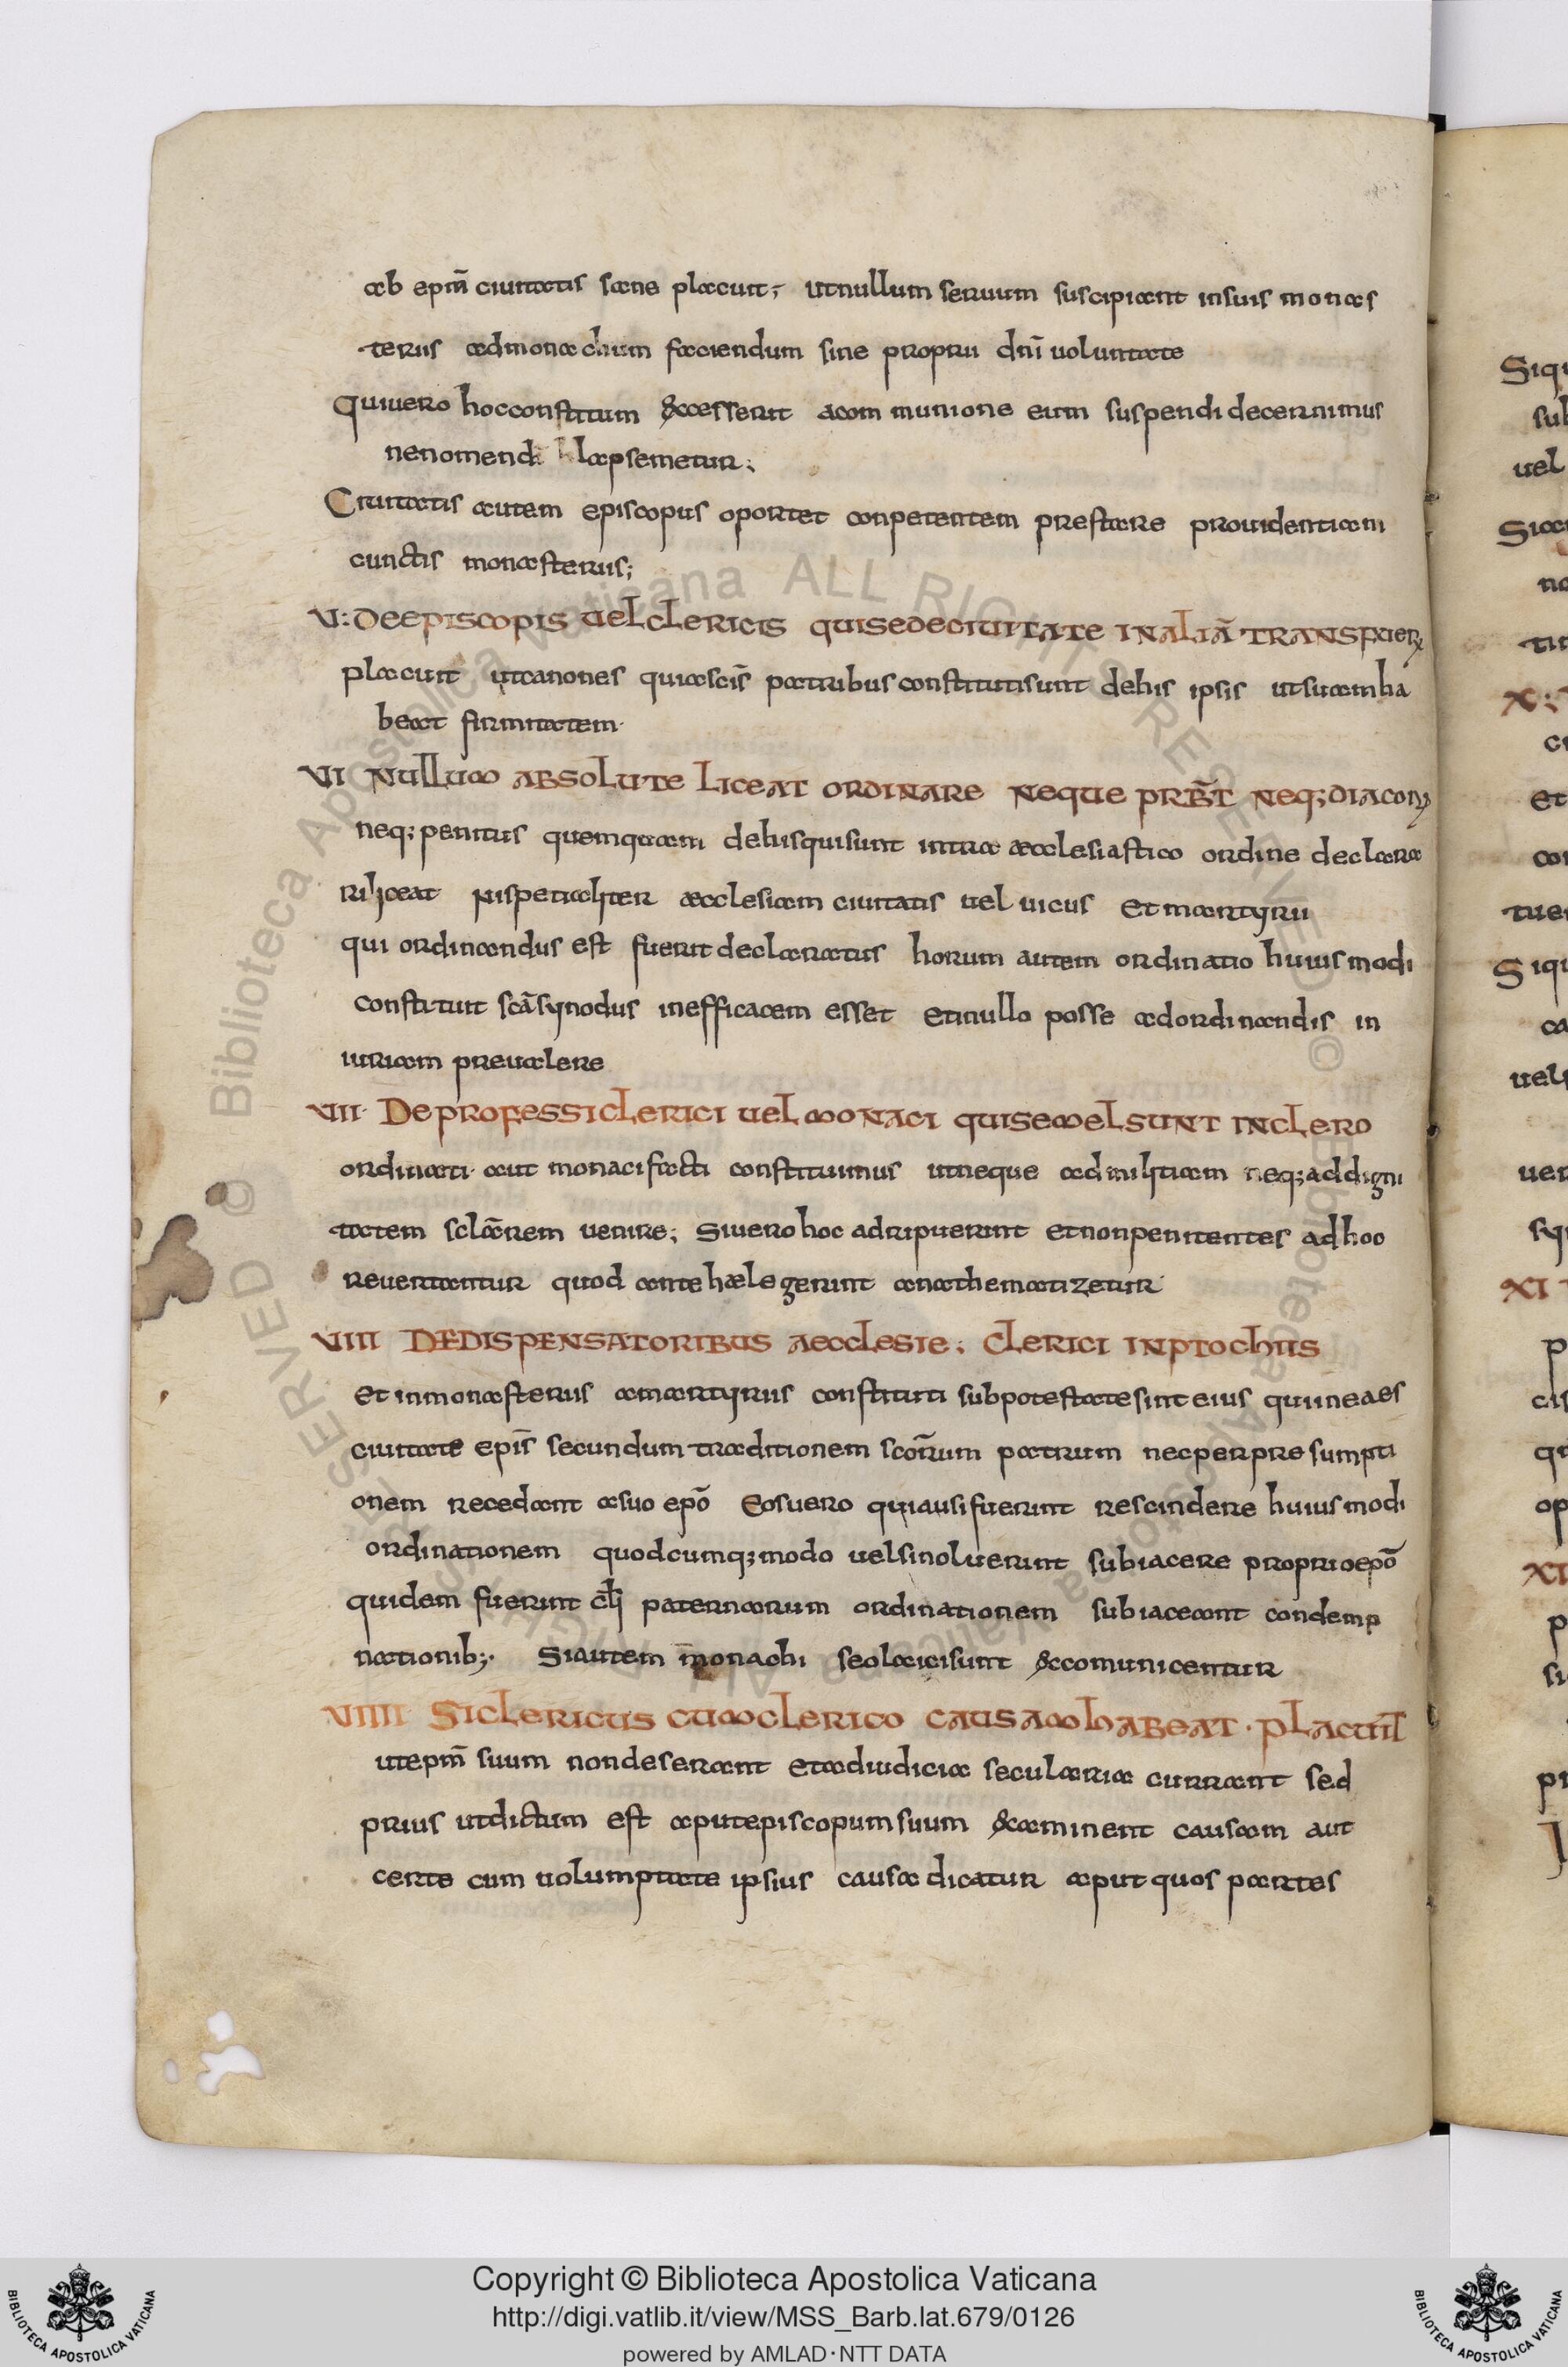 ab epm̄ ciuitatis sane placuit; ut nullum seruum suscipiant in suis monas
teriis ad monachum faciendum sine proprii dn̄i uoluntate
Qui uero hoc constitum excesserit a communione eum suspendi decernimus
ne nomen dī blapsemetur;
Ciuitatis autem episcopus oportet conpetentem prestare prouidentiam
cunctis monasteriis;
VI: DE EPISCOPIS UEL CLERICIS QUI SE DE CIUITATE IN ALIĀ TRANSFUER
placuit ut canones qui a scīs patribus constituti sunt de his ipsis ut suam ha
beat firmitatem
VII NULLUM ABSOLUTE LICEAT ORDINARE NEQUE PRB̄T NEQ; DIACON
neq; penitus quemquam de his qui sunt intra aecclesiastico ordine declara
ri liceat nispetialiter aecclesiam ciuitatis uel uicus et martyrii
qui ordinandus est fuerit declaratus horum autem ordinatio huiusmodi
constituit scā synodus inefficacem esset et nullo posse ad ordinandis in
iuriam preualere
VIII DE PROFESSI CLERICI UEL MONACI QUI SEMEL SUNT IN CLERO
ordinati aut monaci facti constituimus ut neque ad militiam neq; ad digni
tatem sclārem uenire; Si uero hoc adripuerint et non penitentes ad hoc
reuertantur quod ante hæc legerint anathematizetur
VIII DE DISPENSATORIBUS AECCLESIE; CLERICI IN PTOCHIIS
et in monasteriis a martyriis constituti sub potestate sint eius qui in ea es
ciuitate epīs secundum traditionem scōrum patrum nec per presumpti
onem recedant a suo epō Eos uero qui ausi fuerint rescindere huiusmodi
ordinationem quodcumq; modo uel si noluerint subiacere proprio epō
quidem fuerint cl̄i paternarum ordinationem subiaceant condemp
nationib; Si autem monachi seo laici sunt excomunicentur
VIIII SI CLERICUS CUM CLERICO CAUSAM HABEAT · PLACUIT
ut epm̄ suum non deserant et ad iudicia secularia currant sed
prius ut dictum est aput episcopum suum examinent causam aut
certe cum uolumptate ipsius causa dicatur aput quos partes
Copyright © Biblioteca Apostolica Vaticana
http://digi.vatlib.it/view/MSS_Barb.lat.679/0126
powered by AMLAD·NTT DATA